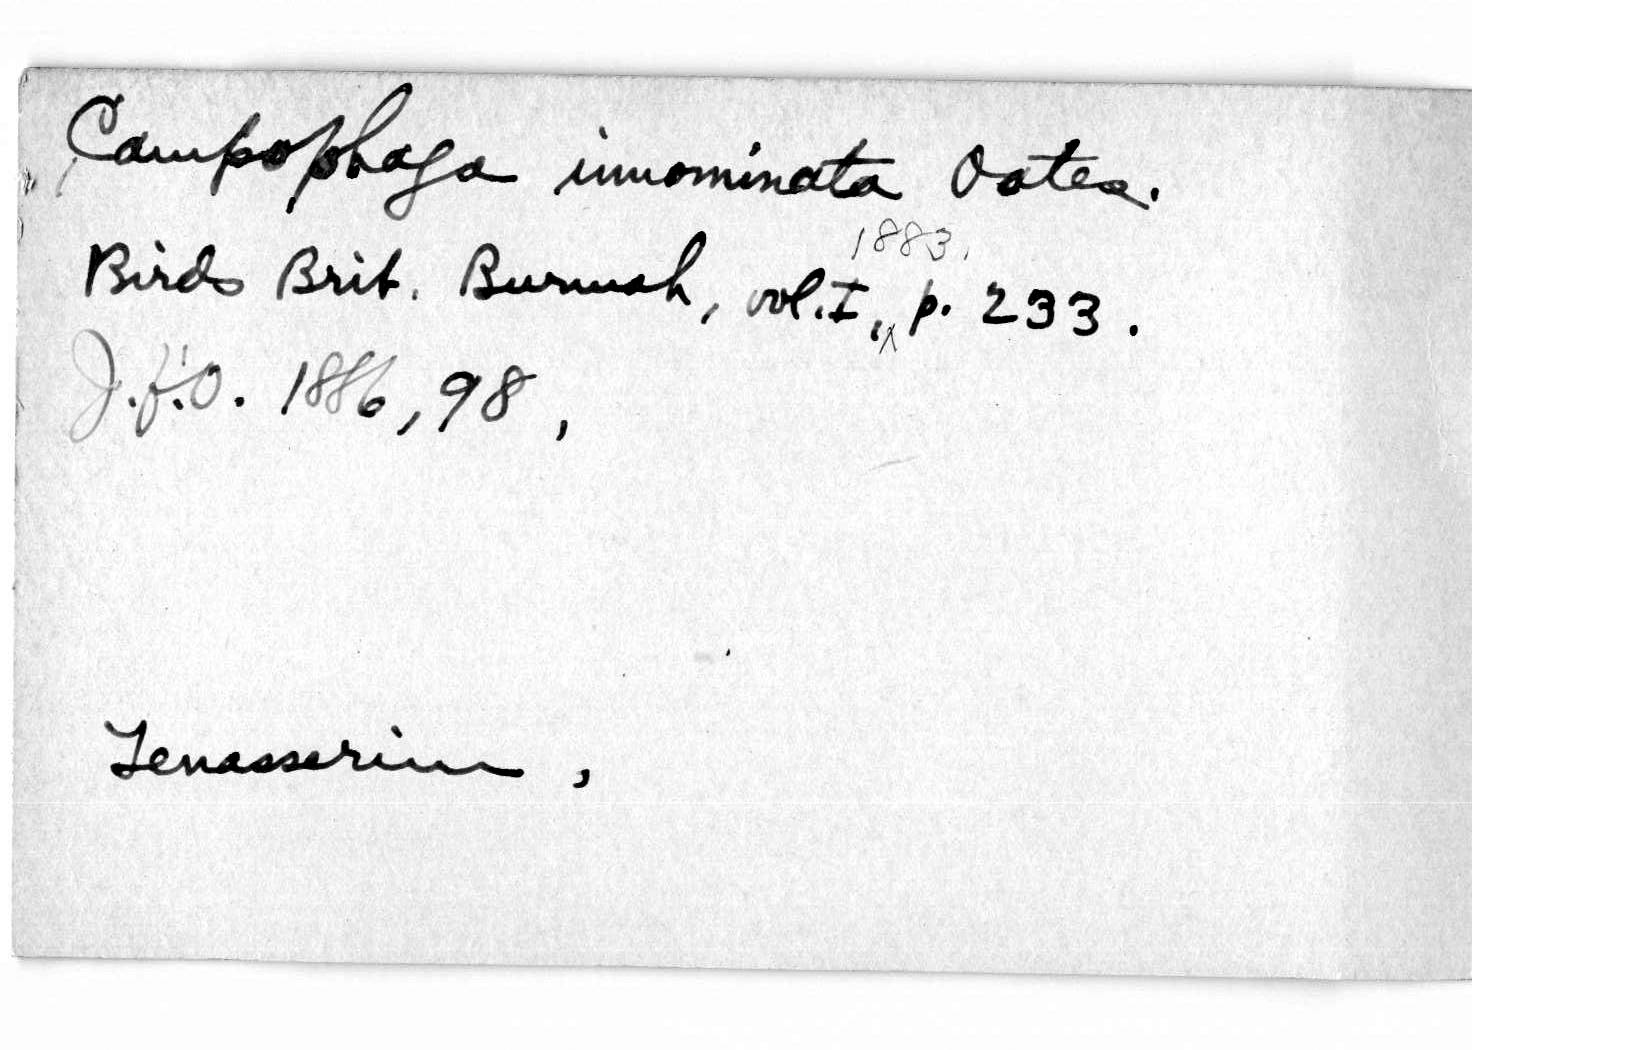 Campophaga innominata Oates.
Birds Brit. Burmah, vol. I, 1883, p. 233.
J.f.O. 1886, 98,
Tenasserim,